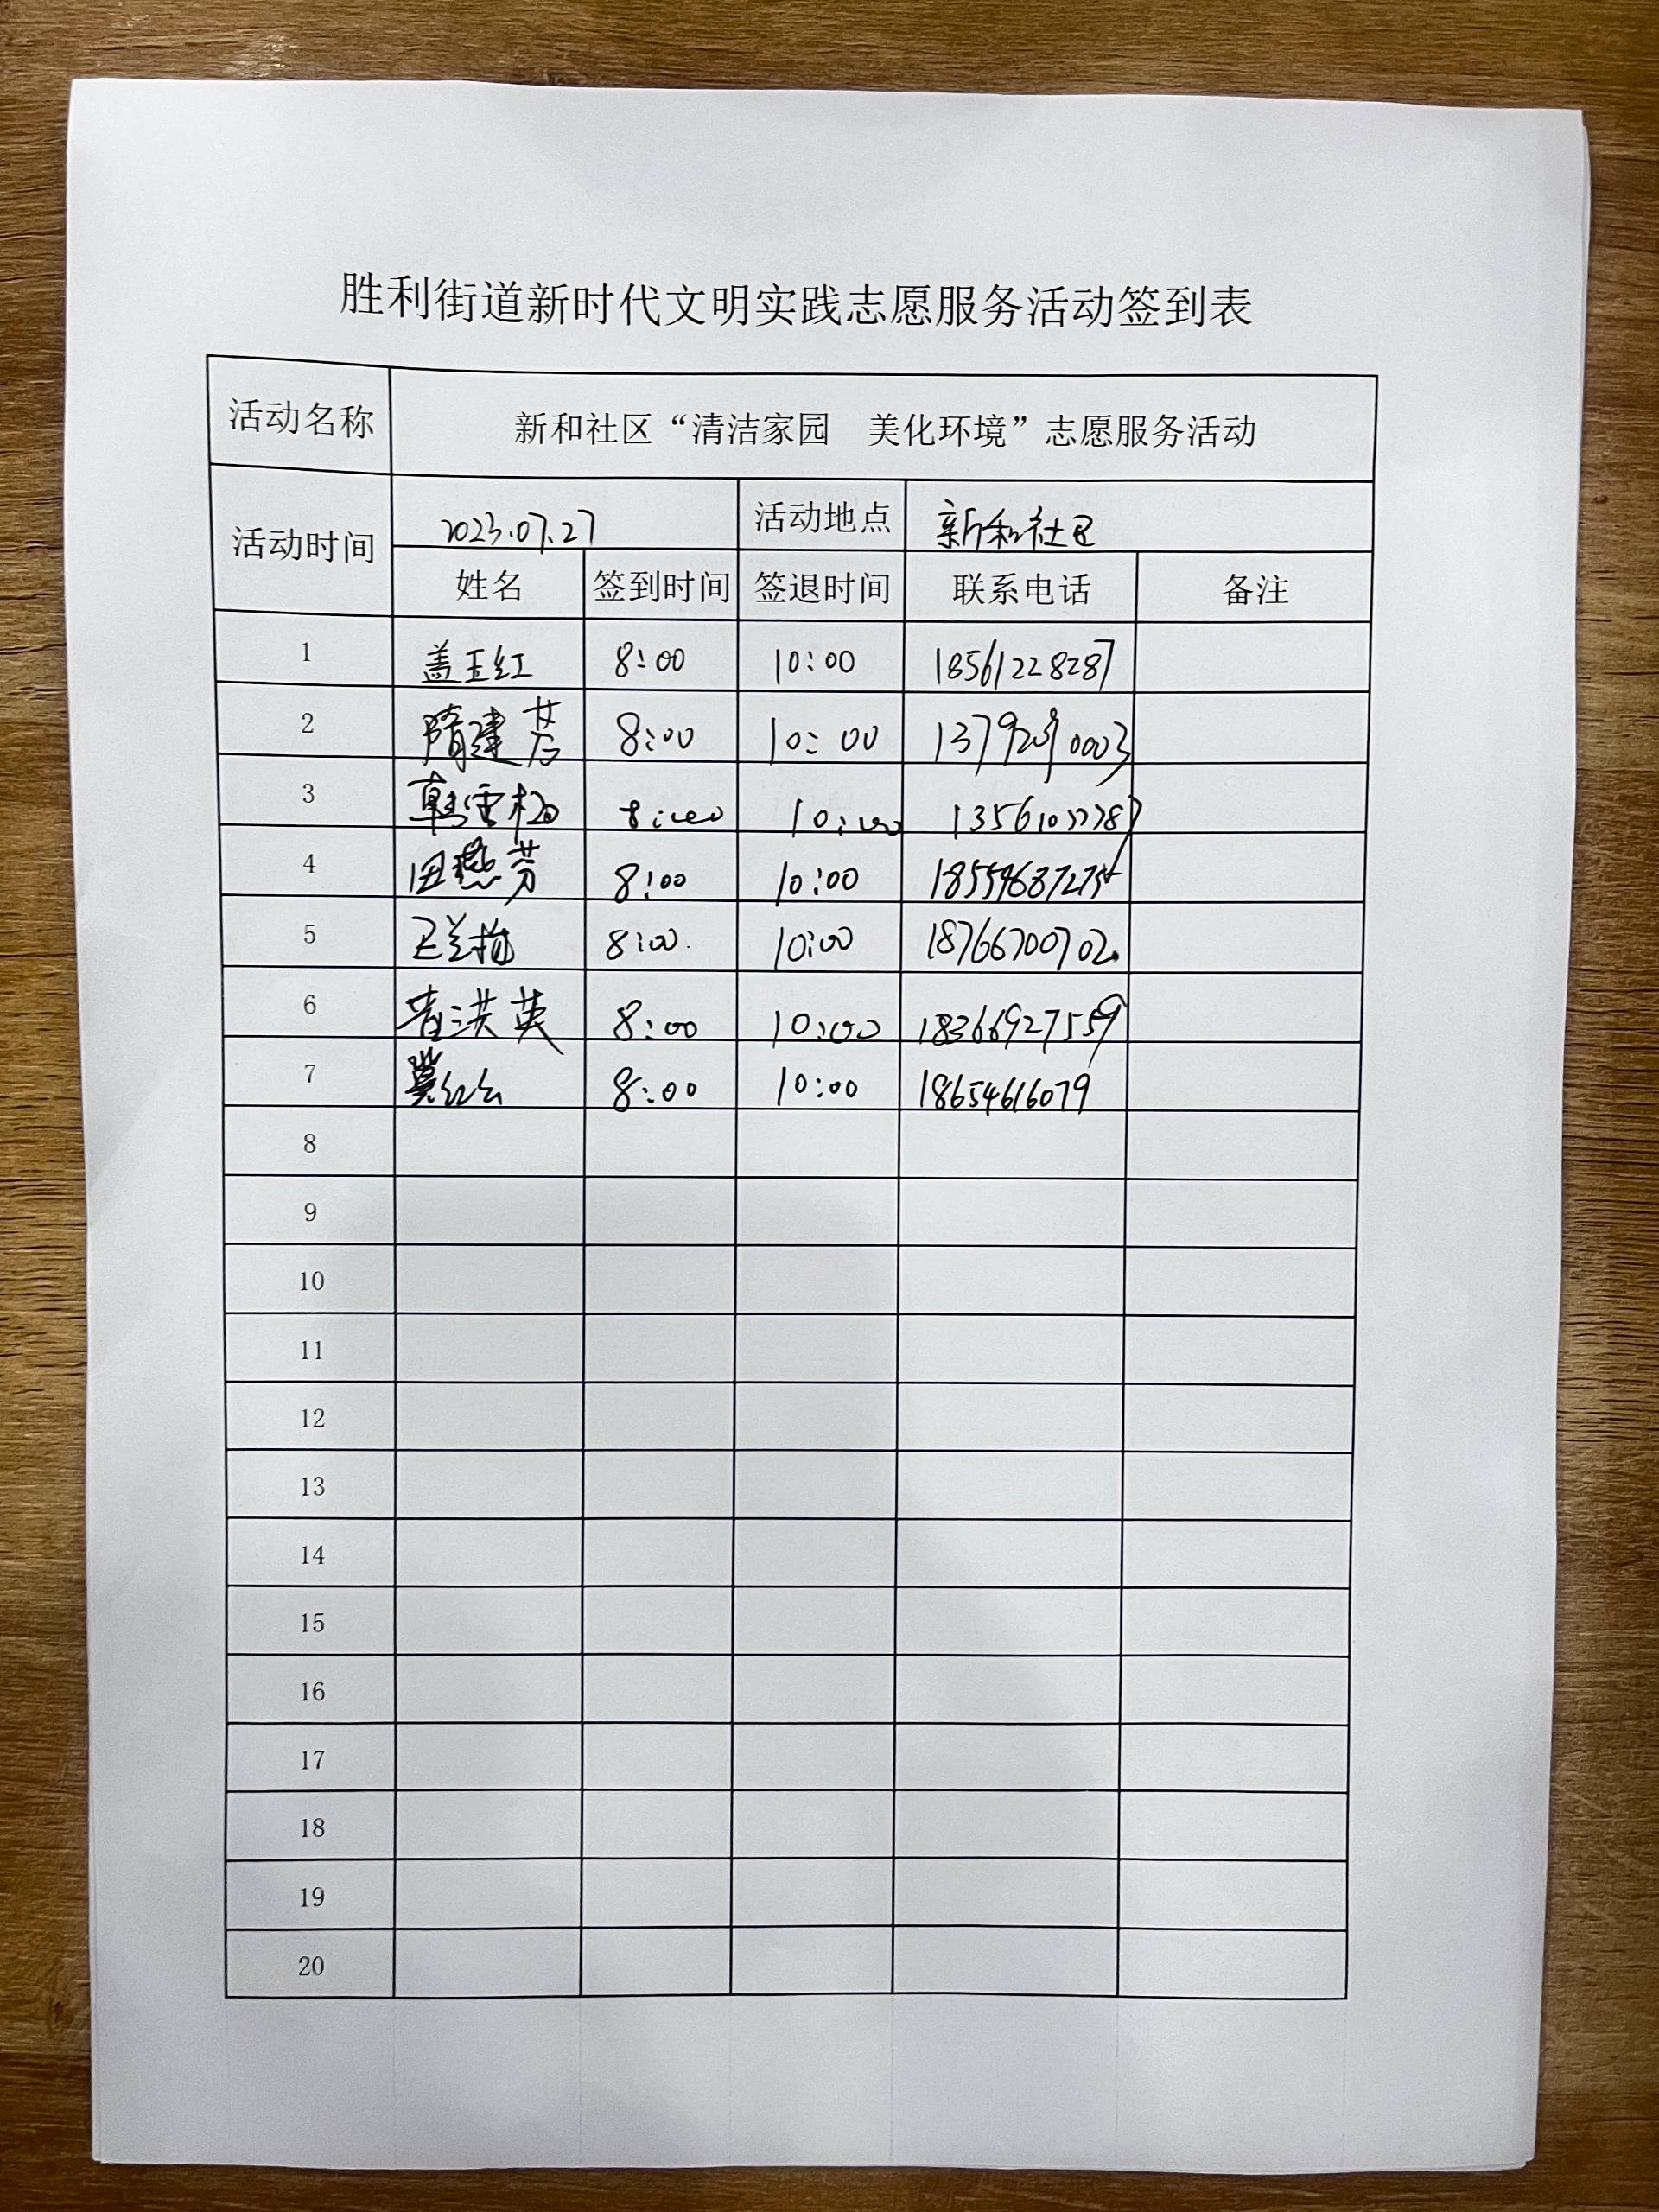 胜利街道新时代文明实践志愿服务活动签到表
活动名称 新和社区“清洁家园 美化环境”志愿服务活动
活动时间 2023.07.27 活动地点 新和社区
姓名 签到时间 签退时间 联系电话 备注
1 盖玉红 8:00 10:00 18561228287
2 隋建芳 8:00 10:00 
3 韩雪梅 8:00 10:00 
4 田燕芳 8:00 10:00 
5 王兰梅 8:00 10:00 18766700702
6 洪英 8:00 10:00 18366927559
7 冀红云 8:00 10:00 18654616079
8
9
10
11
12
13
14
15
16
17
18
19
20